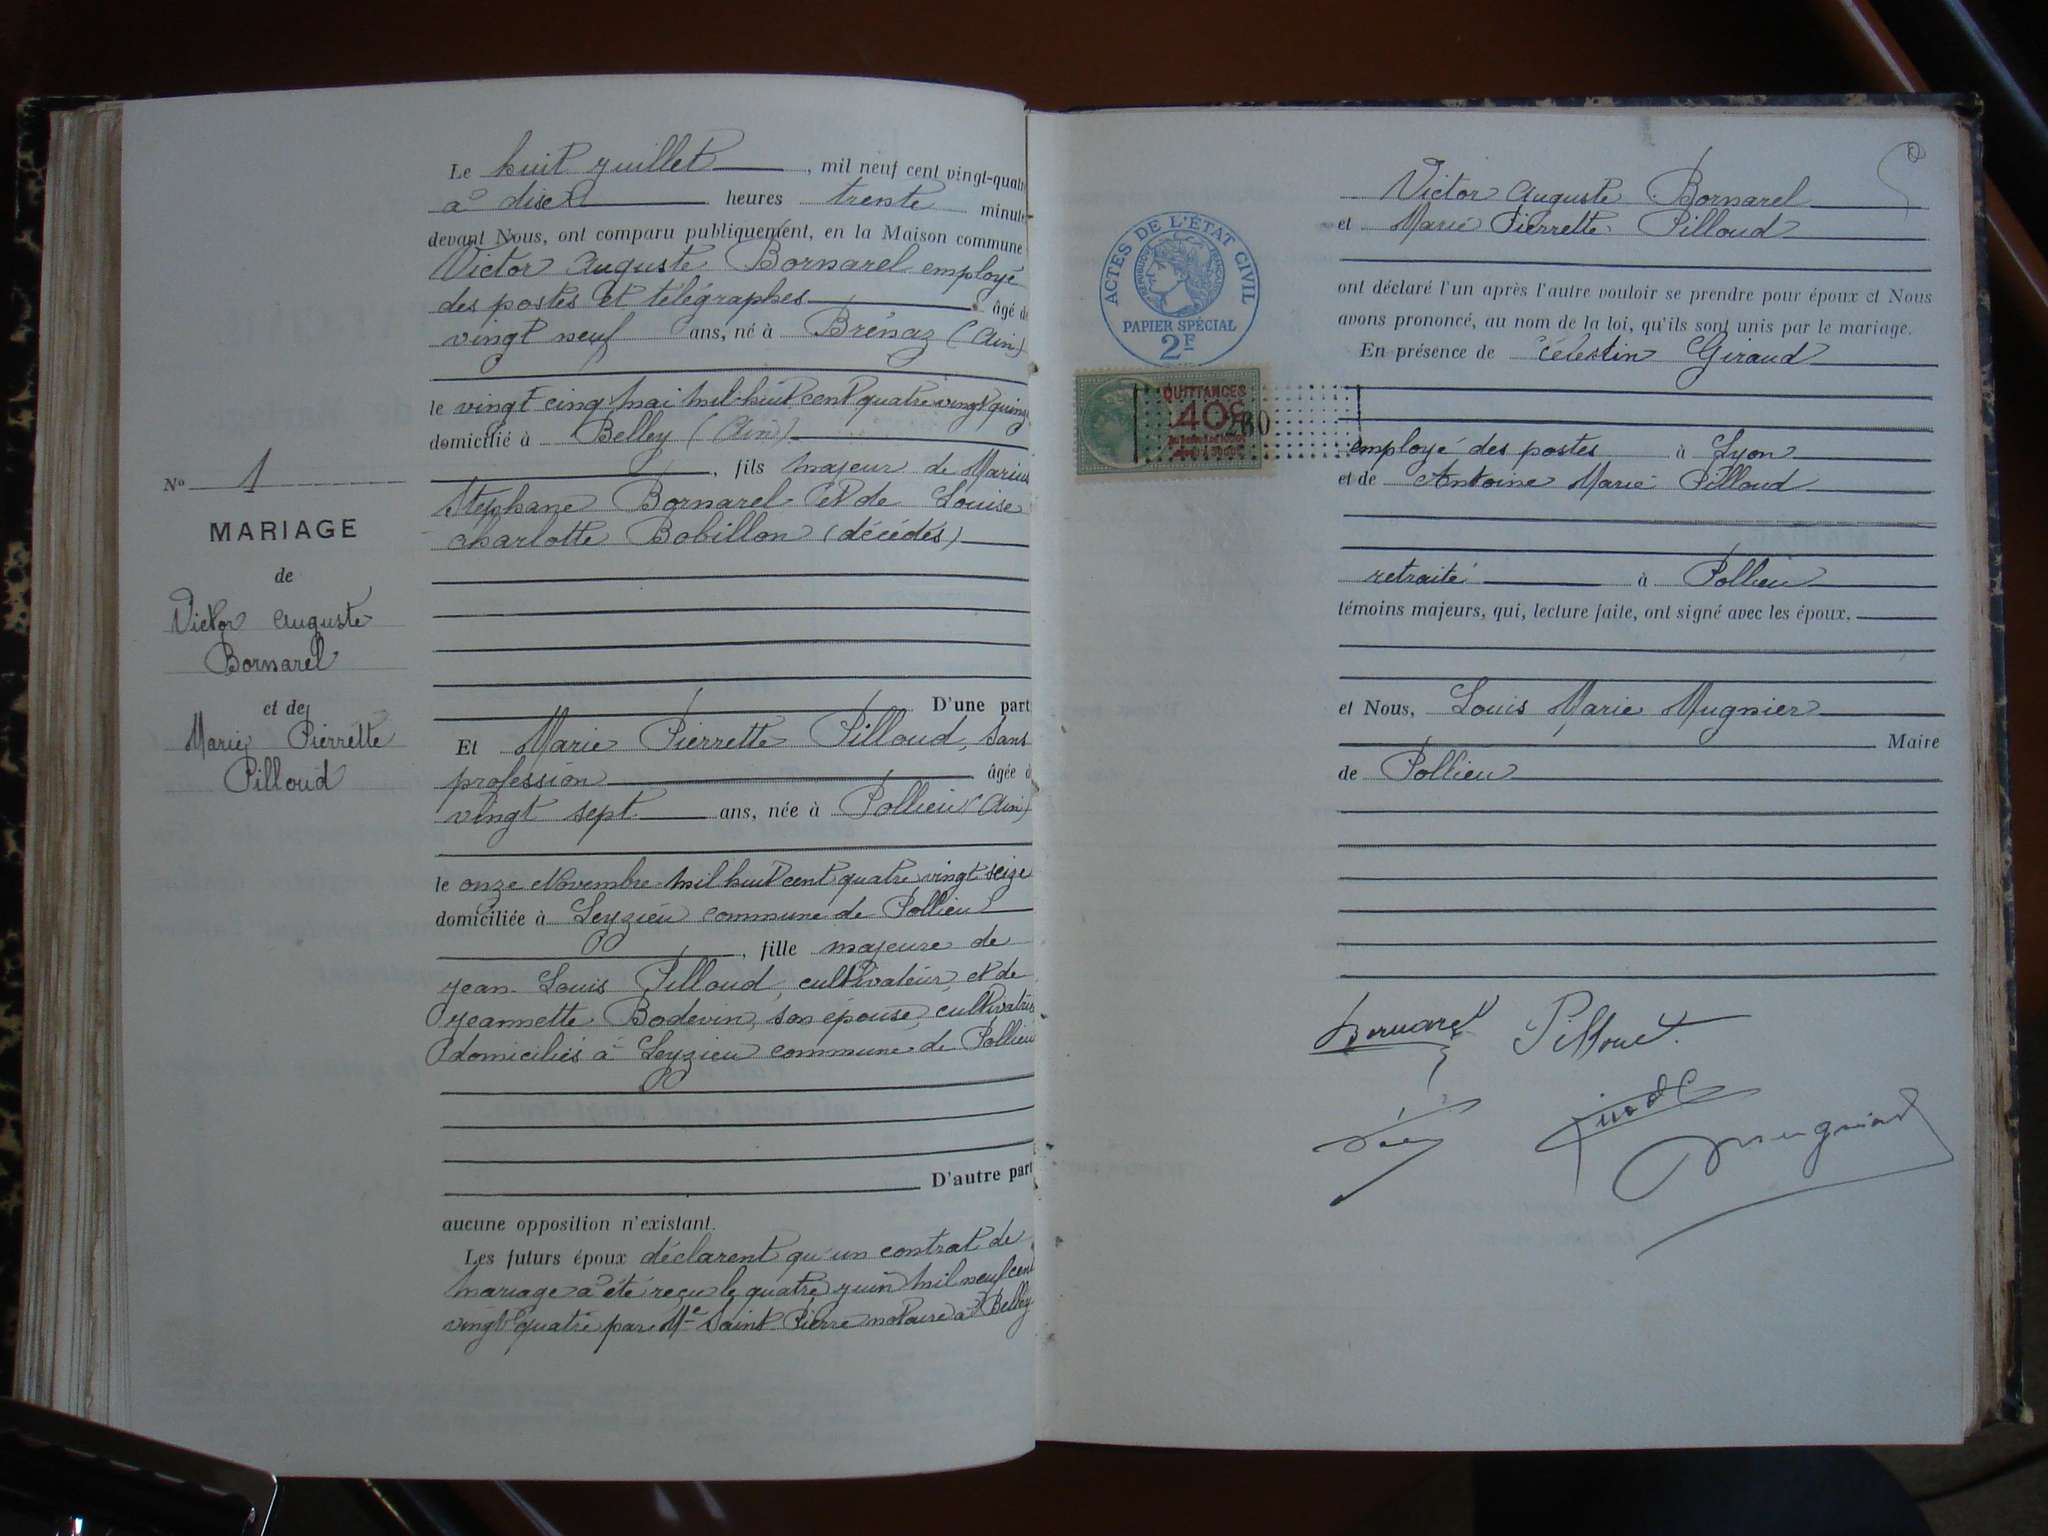 N° 1
MARIAGE
de
Victor Auguste
Bornarel
et de
Marie Pierrette
Pilloud
Le huit juillet, mil neuf cent vingt-quatr
à dix heures trente minute
devant Nous, ont comparu publiquement, en la Maison commune
Victor Auguste Bornarel employé
des postes et télégraphes âgé de
vingt neuf ans, né à Brénaz (Ain)
le vingt cinq mai mil huit cent quatre vingt quinze
domicilié à Belley (Ain)
, fils majeur de Marius
Stéphane Bornarel et de Louise
Charlotte Bobillon (décédés)
D'une part
Et Marie Pierrette Pilloud, sans
profession âgée d
vingt sept ans, née à Pollieu (Ain)
le onze Novembre mil huit cent quatre vingt seize
domiciliée à Leyzieu commune de Pollieu
, fille majeure de
Jean Louis Pilloud, cultivateur, et de
Jeannette Bodevin, son épouse, cultivatrice
domiciliés à Leyzieu commune de Pollieu
D'autre part
aucune opposition n'existant.
Les futurs époux déclarent qu'un contrat de
mariage a été reçu le quatre juin mil neuf cent
vingt quatre par Me Saint Pierre notaire à Belley
ACTES DE L'ÉTAT CIVIL
RÉPUBLIQUE FRANÇAISE
PAPIER SPÉCIAL
2F
QUITTANCES
40c
Victor Auguste Bornarel
et Marie Pierrette Pilloud
ont déclaré l'un après l'autre vouloir se prendre pour époux et Nous
avons prononcé, au nom de la loi, qu'ils sont unis par le mariage.
En présence de Célestin Giraud
employé des postes à Lyon
et de Antoine Marie Pilloud
retraité à Pollieu
témoins majeurs, qui, lecture faite, ont signé avec les époux.
et Nous, Louis Marie Mugnier
Maire
de Pollieu
Bornarel Pilloud
Mugnier